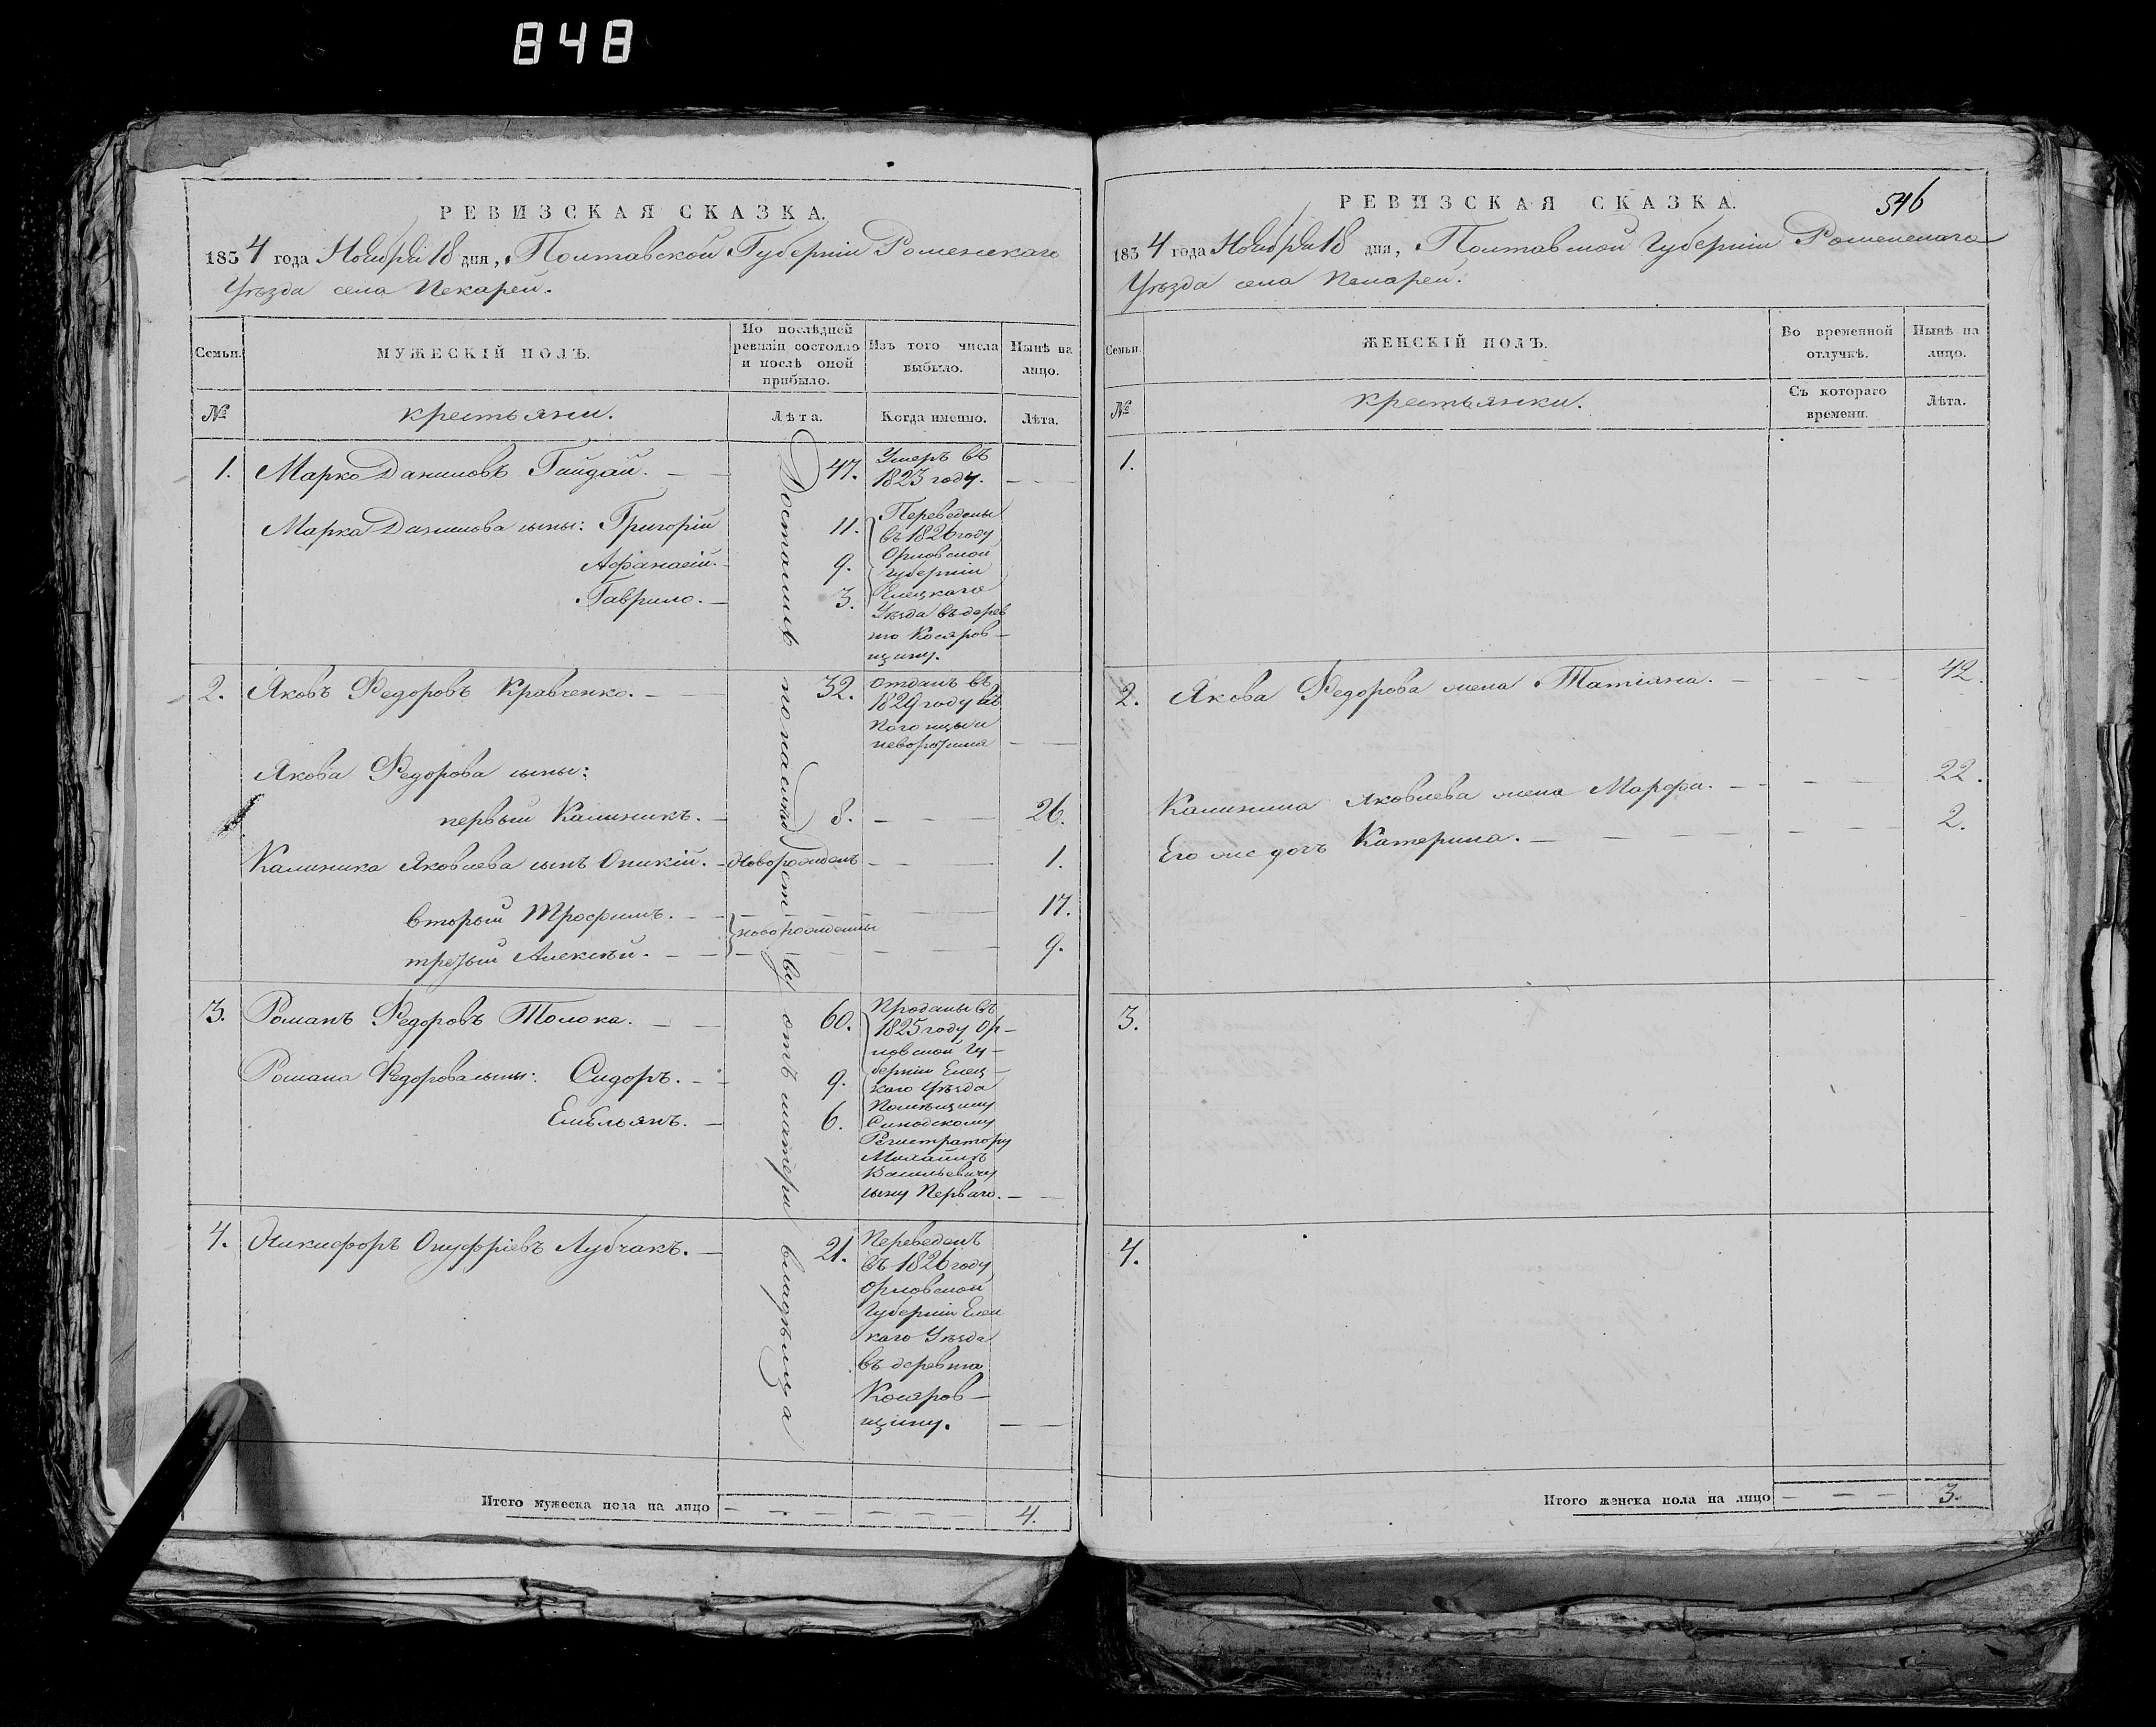 848
РЕВИЗСКАЯ СКАЗКА.
1834 года Ноября 18 дня, Полтавской Губерніи Роменскаго
Уѣзда села Пекарей.
Семьи.
МУЖЕСКІЙ ПОЛЪ.
По послѣдней
ревизіи состояло
и послѣ оной
прибыло.
Изъ того числа
выбыло.
Нынѣ на
лицо.
№
крестьяни.
Лѣта.
Когда именно.
Лѣта.
Достались по наслѣдству отъ матери владѣлца
1. Марко Даниловъ Гайдай. — 47. Умеръ въ
1823 году. — —
Марка Данилова сыны: Григорій 11.
Афанасій. — 9.
Гаврило. — 3.
Переведены
въ 1826 году
Орловской
Губерніи
Елецкаго
Уѣзда въ дерев
ню Кояров—
щину.
2. Яковъ Федоровъ Кравченко. — 32. Отданъ въ
1829 году
— —
Якова Федорова сыны:
первый Калиникъ. — 8. — — 26.
Калиника Яковлева сынъ Оникій. — Новорожденъ — — 1.
вторый Трофимъ. — — 17.
новорожденны
третый Алексѣй. — — 9.
3. Романъ Федоровъ Толока. — 60.
Романа Федорова сыны: Сидоръ. — 9.
Емѣльянъ. — 6.
Проданы въ
1825 году Ор—
ловской Гу—
берніи Елец—
каго Уѣзда
Помѣщику
Синодскому
Регистратору
Михайлѣ
Васильевичу
сыну Перваго. — —
4. Никифоръ Онуфріевъ Лубчакъ. — 21. Переведенъ
въ 1826 году
Орловской
Губерніи Елец
каго Уѣзда
въ деревню
Кояров—
щину. — —
Итого мужеска пола на лицо — — — — 4.
546
РЕВИЗСКАЯ СКАЗКА.
1834 года Ноября 18 дня, Полтавской Губерніи Роменскаго
Уѣзда села Пекарей.
Семьи.
ЖЕНСКІЙ ПОЛЪ.
Во временной
отлучкѣ.
Нынѣ на
лицо.
№
крестьянки.
Съ котораго
времени.
Лѣта.
1.
2. Якова Федорова жена Татіяна. — — — 42.
Калиника Яковлева жена Марфа. — — — 22.
Его же дочь Катерина. — — — 2.
3.
4.
Итого женска пола на лицо — — — 3.